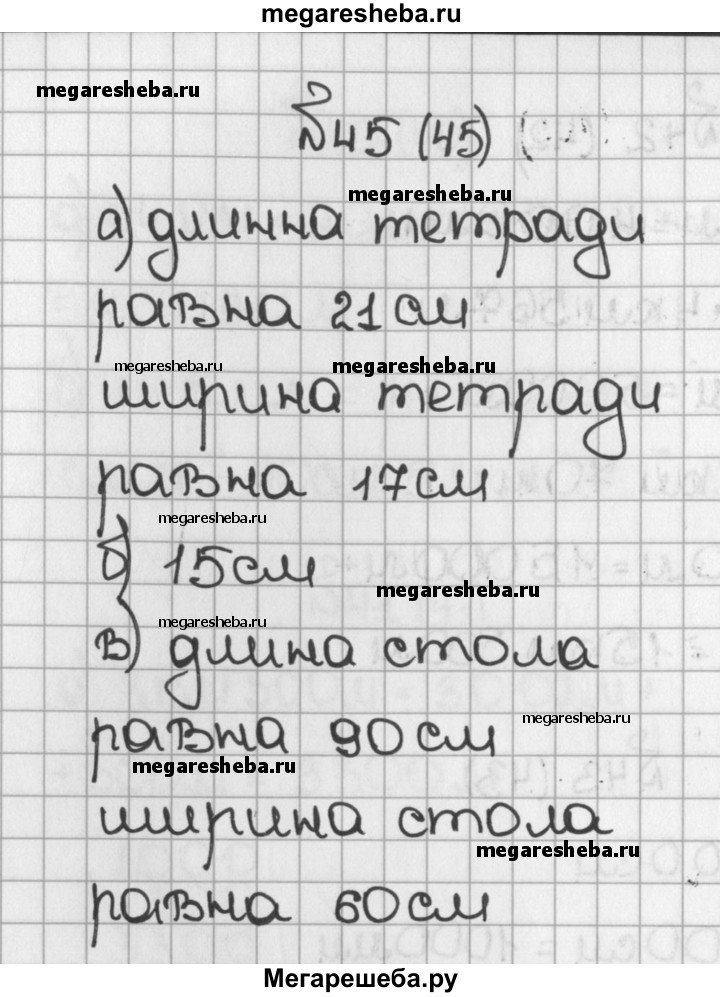 megaresheba.ru
megaresheba.ru
№45 (45)
megaresheba.ru
а) длинна тетради
равна 21 см
megaresheba.ru megaresheba.ru
ширина тетради
равна 17 см
megaresheba.ru
б) 15 см
megaresheba.ru
megaresheba.ru
в) длина стола
megaresheba.ru
равна 90 см
megaresheba.ru
ширина стола
megaresheba.ru
равна 60 см
Мегарешеба.ру